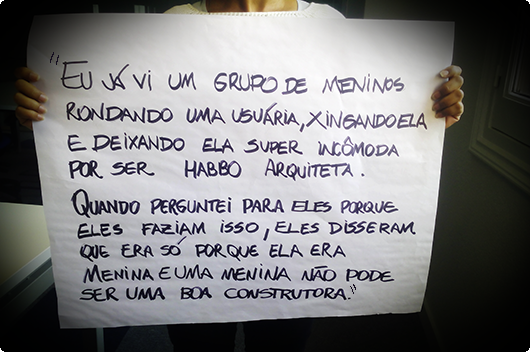 "EU JÁ VI UM GRUPO DE MENINOS
RONDANDO UMA USUÁRIA, XINGANDO ELA
E DEIXANDO ELA SUPER INCÔMODA
POR SER HABBO ARQUITETA.
QUANDO PERGUNTEI PARA ELES PORQUE
ELES FAZIAM ISSO, ELES DISSERAM
QUE ERA SÓ PORQUE ELA ERA
MENINA E UMA MENINA NÃO PODE
SER UMA BOA CONSTRUTORA."